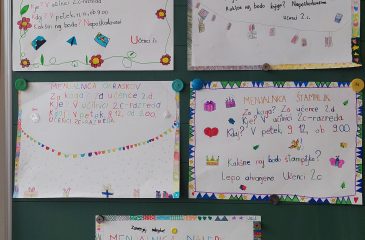 Kje? V učilnici 2.c-razreda
Kdaj? V petek, 9. 12. ob 9.00
Kakšni naj bodo? Nepoškodovani
Učenci 2.c
Kakšne naj bodo knjige? Nepoškodovane
Učenci 2.c
MENJALNICA OKRASKOV
Za koga? Za učence 2.d.
Kje? V učilnici 2.c-razreda
Kdaj? V petek 9. 12, ob 9.00.
UČENCI 2.C-RAZREDA.
MENJALNICA ŠTAMPILJK
Za koga? Za učence 2.d
Kje? V učilnici 2.c-razreda
Kdaj? V petek 9. 12, ob 9.00
Kakšne naj bodo štampiljke?
Lepo ohranjene Učenci 2.c
MENJALNICA